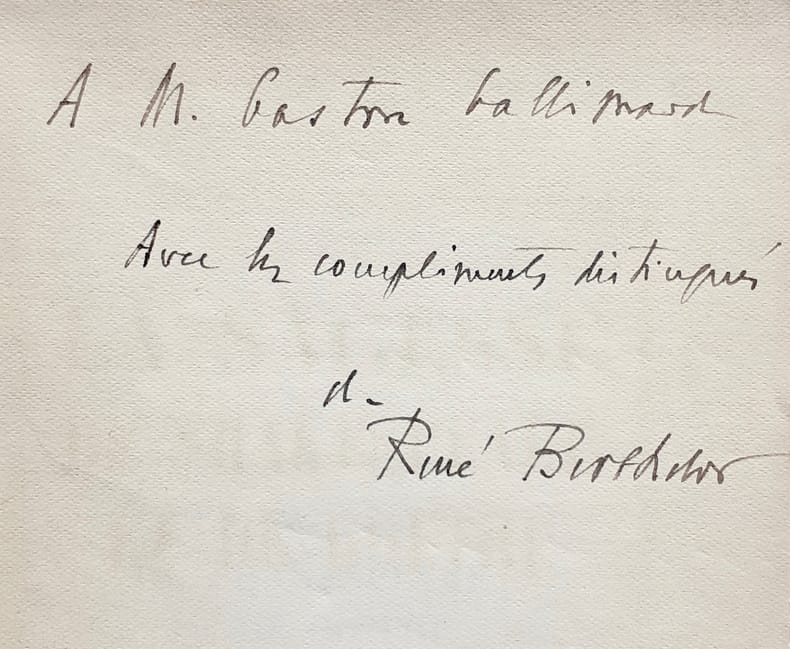 A M. Gaston Gallimard
Avec les compliments distingués
de
René Berthelot